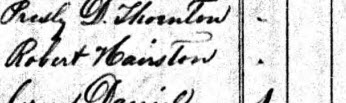 Presly D. Thornton
Robert Hairston
Daniel